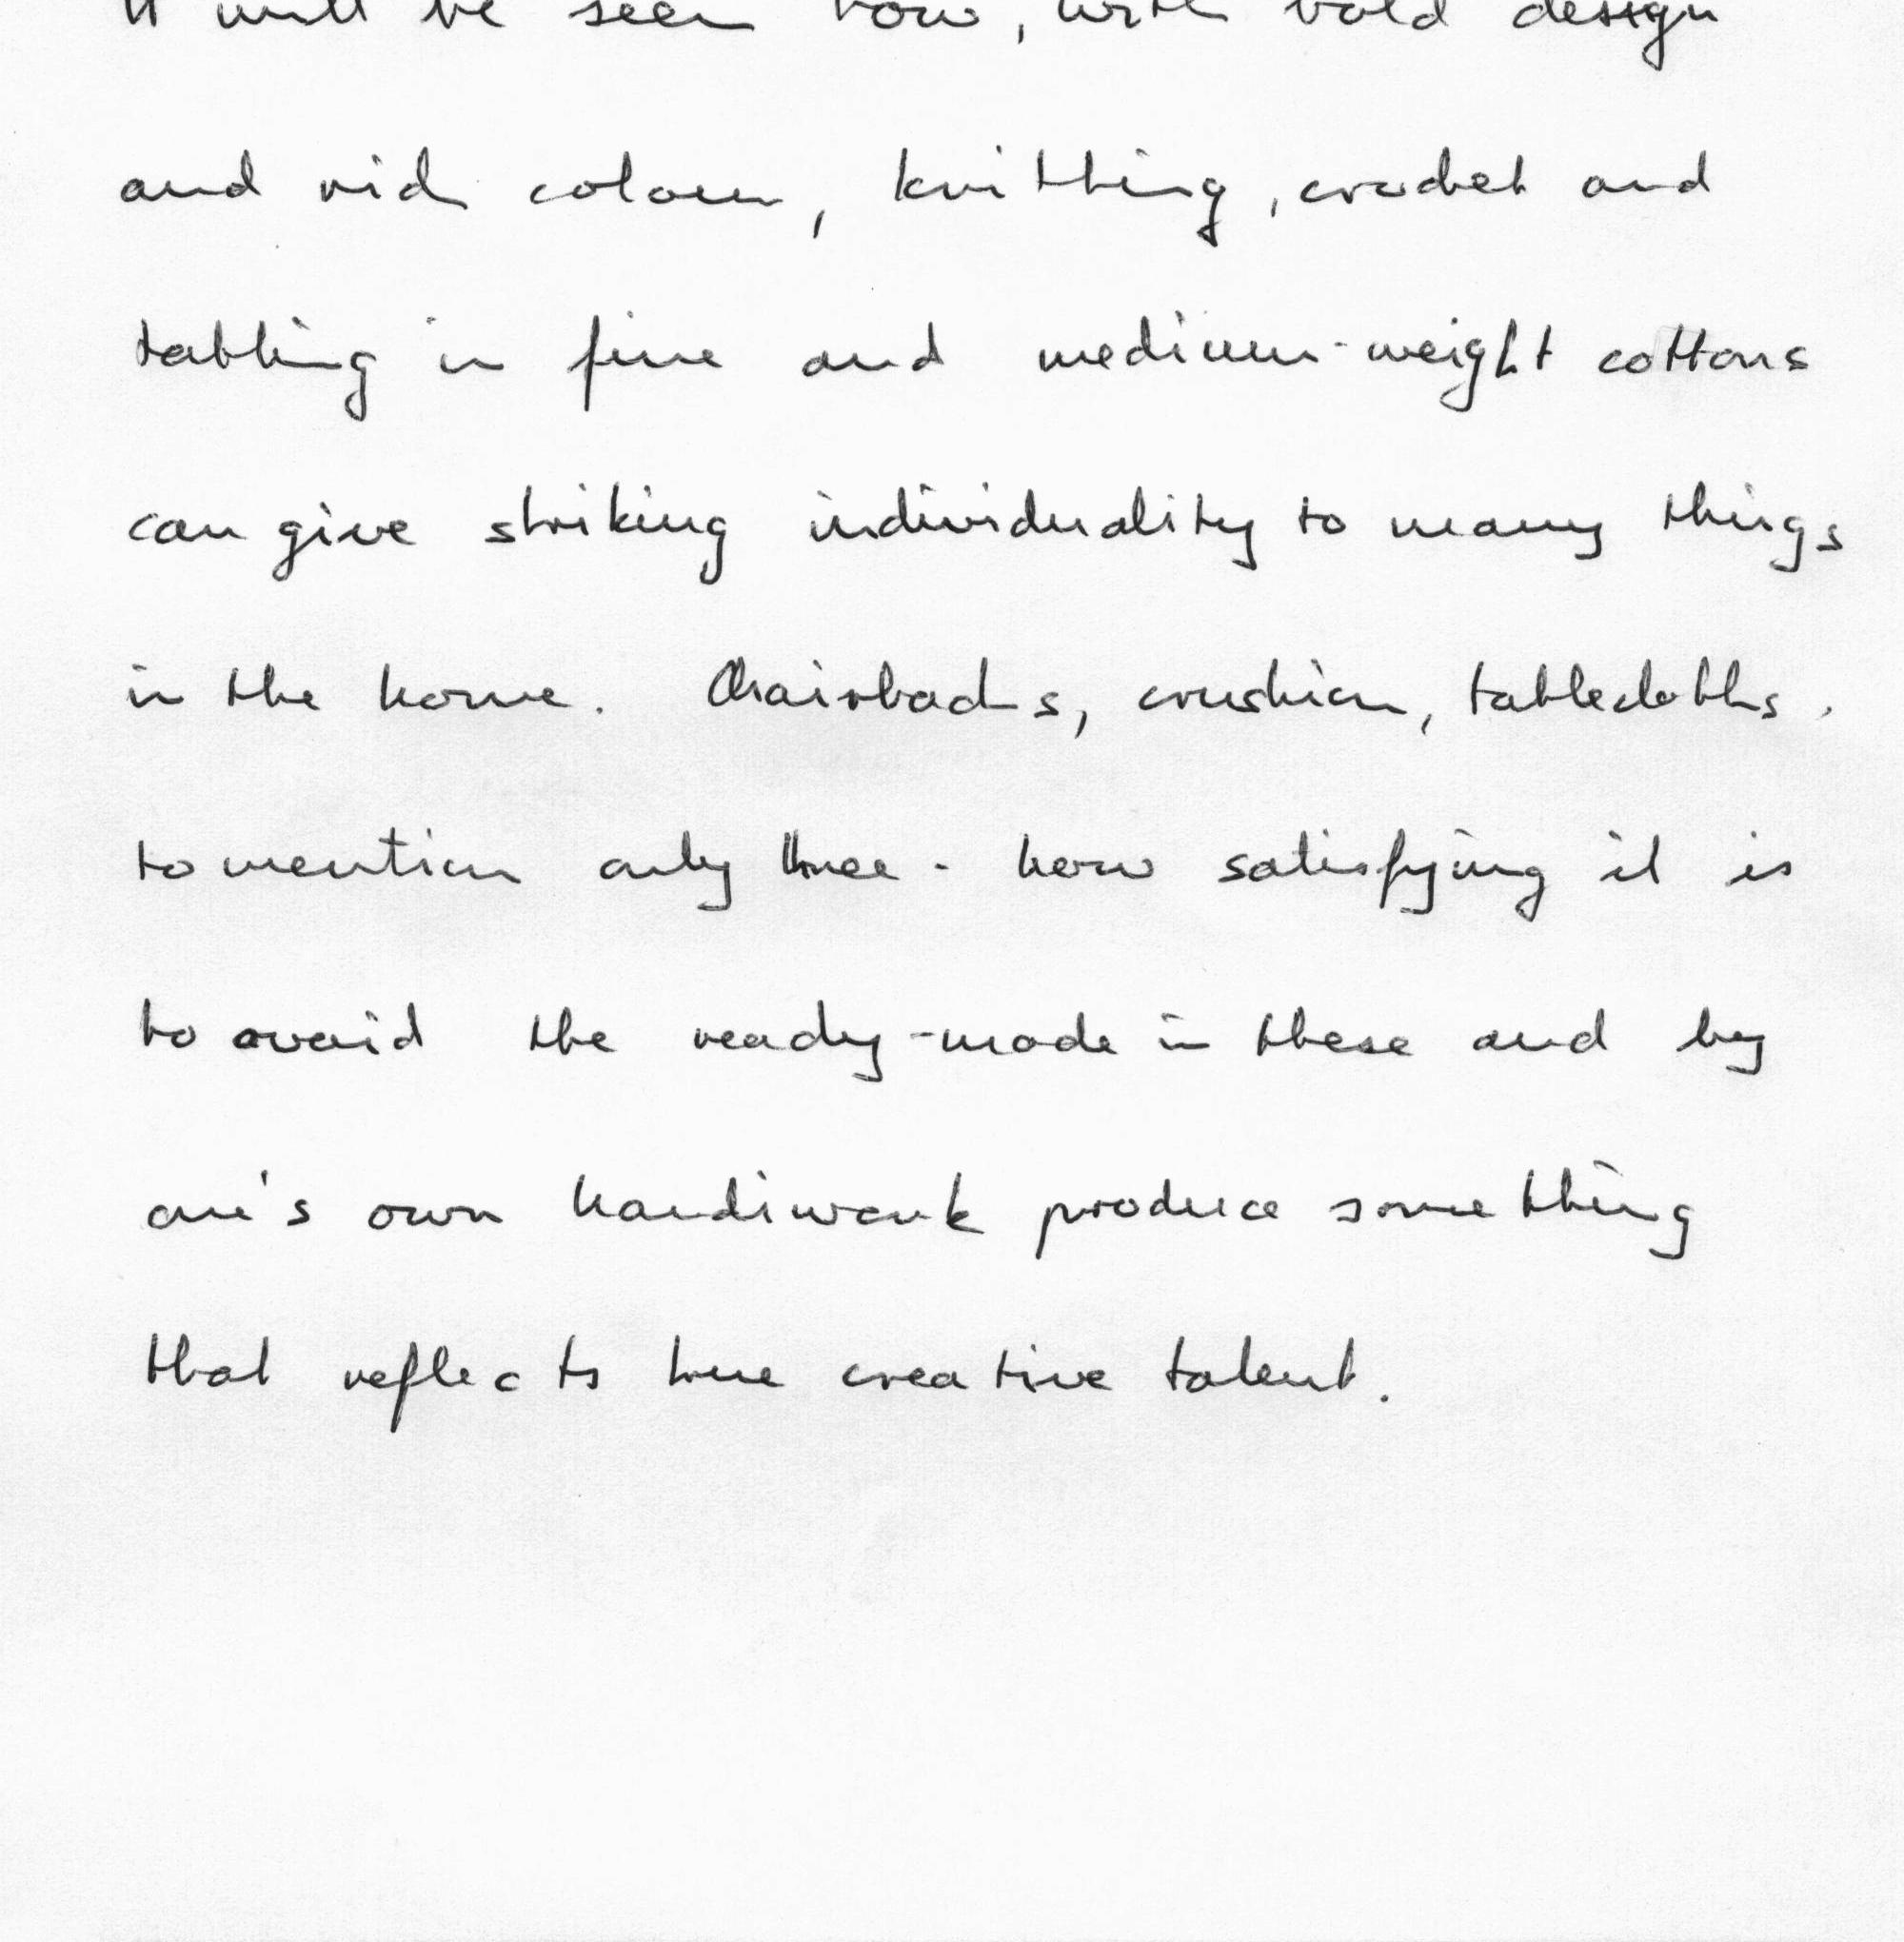 It will be seen how, with bold design
and rich colour, knitting, crochet and
tatting in fine and medium-weight cottons
can give striking individuality to many things
in the home. Chairbacks, cushion, tablecloths.
to mention only three - how satisfying it is
to avoid the ready-made in these and by
one's own handiwork produce something
that reflects true creative talent.